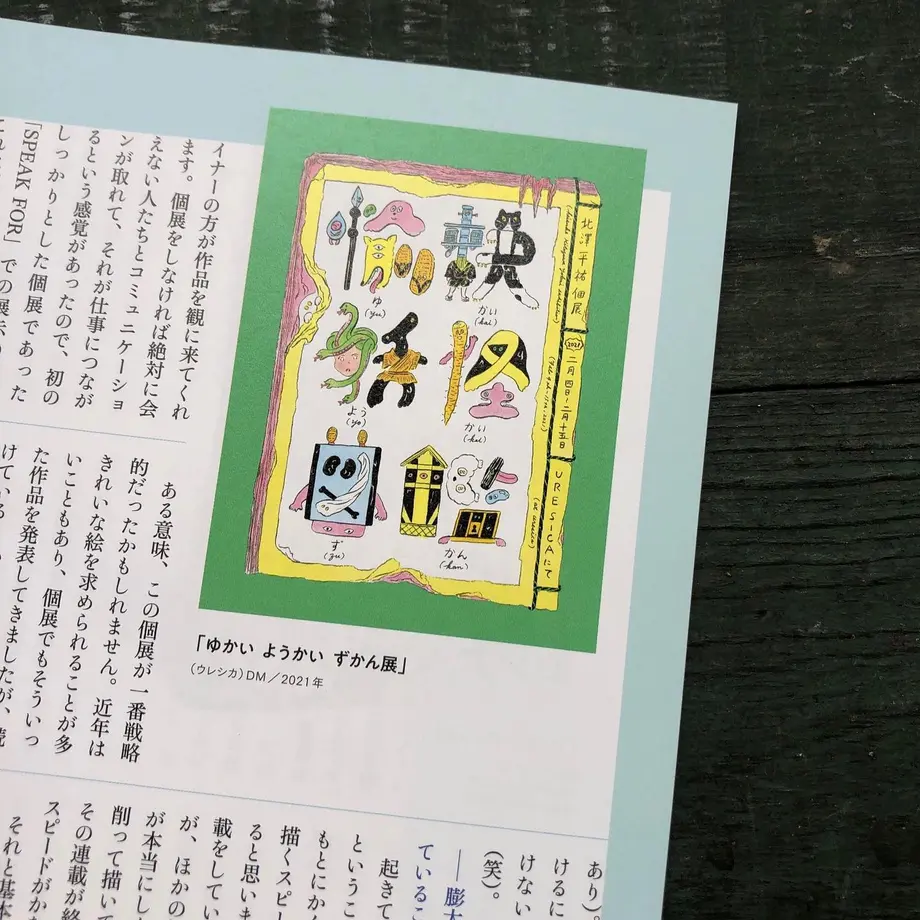 北澤平祐個展
2021
二月四日-二月十五日
URESICAにて
(at uresica)
愉快
ゆ
(yu)
かい
(kai)
妖怪
よう
(yo)
かい
(kai)
図鑑
ず
(zu)
かん
(kan)
「ゆかい ようかい ずかん展」
(ウレシカ)DM/2021年
イナーの方が作品を観に来てくれ
ます。個展をしなければ絶対に会
えない人たちとコミュニケーショ
ンが取れて、それが仕事につなが
るという感覚があったので、初の
しっかりとした個展であった
「SPEAK FOR」での展示
ある意味、この個展が一番戦略
的だったかもしれません。近年は
きれいな絵を求められることが多
いこともあり、個展でもそういっ
た作品を発表してきましたが、
けている
あり)。
けるに
けない
(笑)。
― 膨大
ているこ
起きて
というこ
もとにか
描くスピー
ると思いま
載をしてい
が、ほかの
が本当にし
削って描いて
その連載が終
スピードがか
それと基本